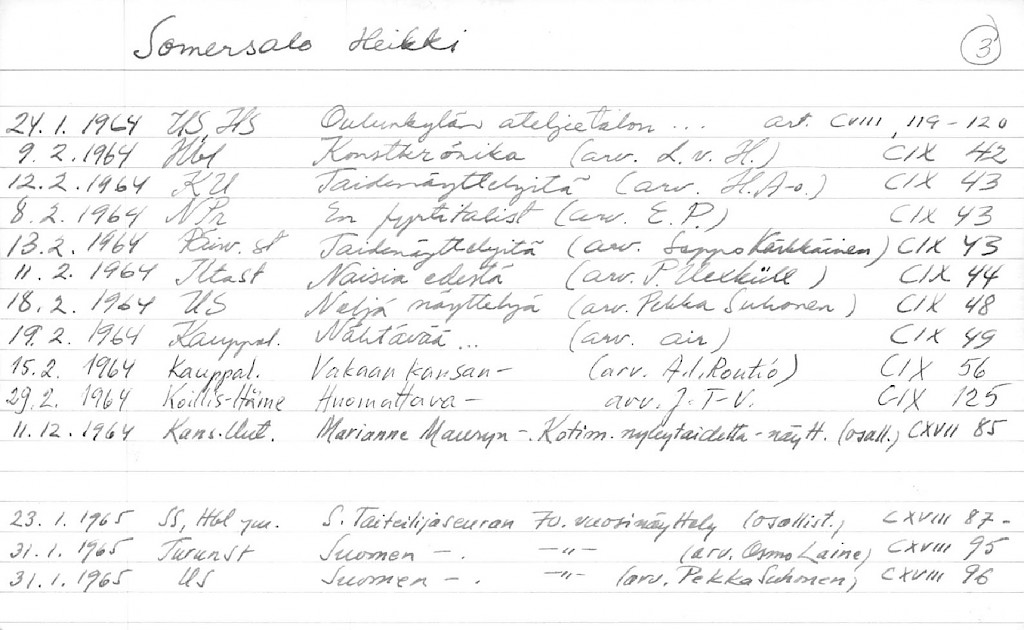 Somersalo Heikki 3
24.1.1964 US, HS Oulunkylän ateljeetalon ... art. CVIII, 119-120
9.2.1964 Hbl Konstkrönika (arv. L.v.H.) CIX 42
12.2.1964 KU Taidenäyttelyitä (arv. H.A-o.) CIX 43
8.2.1964 NPr En (arv. E.P.) CIX 43
13.2.1964 Päiv.st Taidenäyttelyitä (arv. Seppo Kärkkäinen) CIX 43
11.2.1964 Iltast Naisia edestä (arv. P. Uexküll) CIX 44
18.2.1964 US Neljä näyttelyä (arv. Pekka Suhonen) CIX 48
19.2.1964 Kauppal. Nähtävää ... (arv. air) CIX 49
15.2.1964 Kauppal. Vakaan kansan- (arv. A.I. Routio) CIX 56
29.2.1964 Koillis-Häme Huomattava - arv. J.T-V. CIX 125
11.12.1964 Kans.Uut. Marianne Mauryn -. Kotim. nykytaidetta - näytt. (osall.) CXVII 85
23.1.1965 SS, Hbl ym. S. Taiteilijaseuran 70. vuosinäyttely (osallist.) CXVIII 87-
31.1.1965 Turunst Suomen -. -"- (arv. Osmo Laine) CXVIII 95
31.1.1965 US Suomen -. -"- (arv. Pekka Suhonen) CXVIII 96